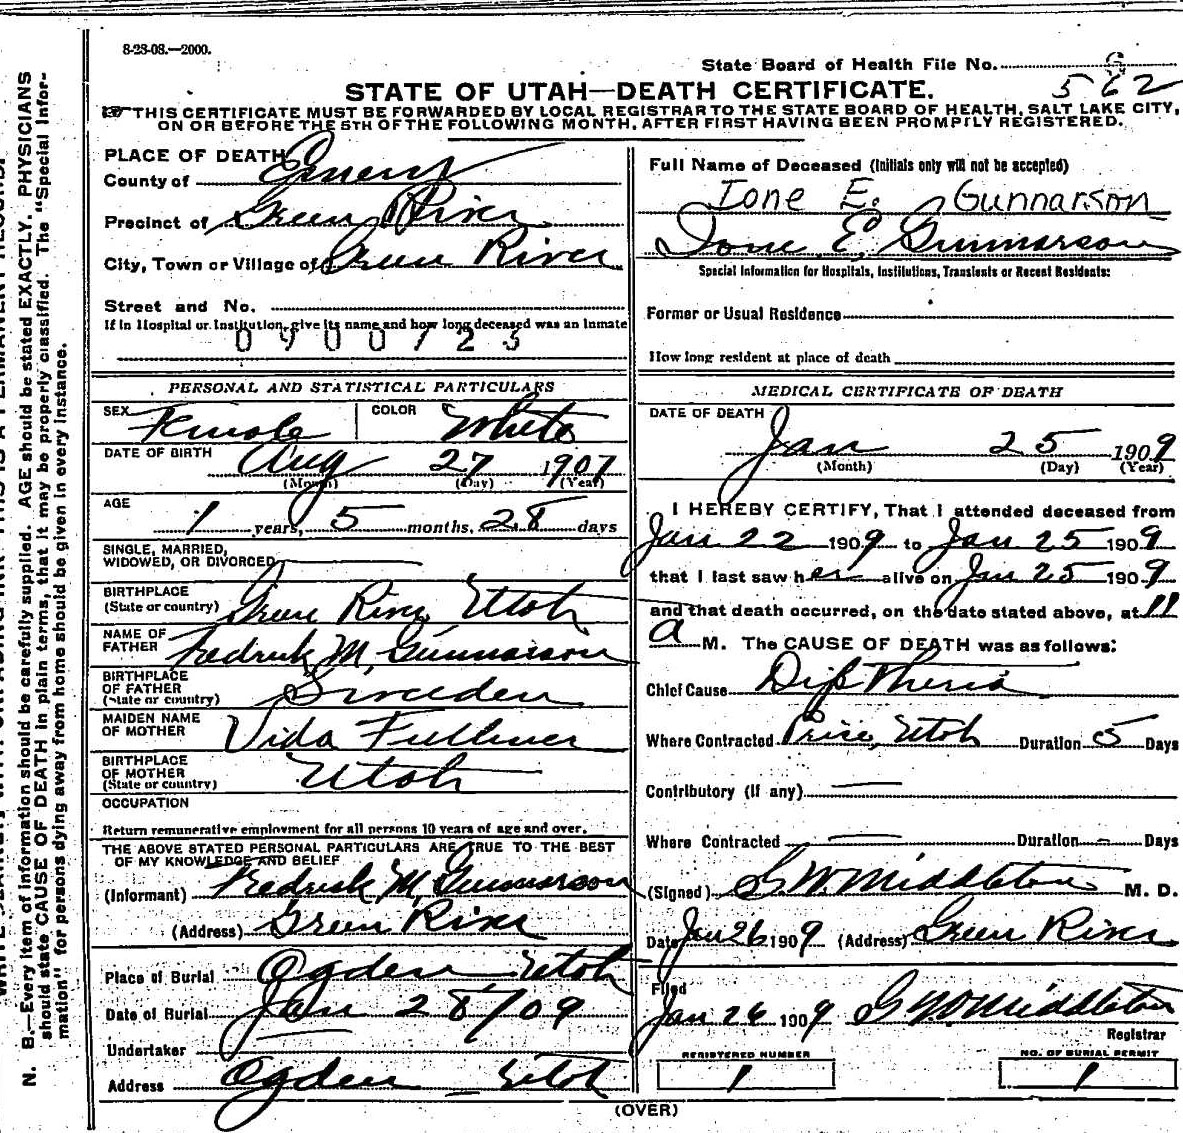 8-23-08.—2000.
State Board of Health File No. 562
STATE OF UTAH—DEATH CERTIFICATE.
THIS CERTIFICATE MUST BE FORWARDED BY LOCAL REGISTRAR TO THE STATE BOARD OF HEALTH, SALT LAKE CITY,
ON OR BEFORE THE 5TH OF THE FOLLOWING MONTH, AFTER FIRST HAVING BEEN PROMPTLY REGISTERED.
PLACE OF DEATH
County of Emery
Precinct of Green River
City, Town or Village of Green River
Street and No.
If in Hospital or Institution, give its name and how long deceased was an Inmate
Full Name of Deceased (Initials only will not be accepted)
Ione E. Gunnarson
Ione E. Gunnarson
Special Information for Hospitals, Institutions, Transients or Recent Residents:
Former or Usual Residence
How long resident at place of death
PERSONAL AND STATISTICAL PARTICULARS
SEX Female COLOR White
DATE OF BIRTH Aug 27 1907
(Month) (Day) (Year)
AGE 1 years, 5 months, 28 days
SINGLE, MARRIED,
WIDOWED, OR DIVORCED
BIRTHPLACE
(State or country) Green River Utah
NAME OF
FATHER Fredrick M. Gunnarson
BIRTHPLACE
OF FATHER
(State or country) Sweeden
MAIDEN NAME
OF MOTHER Vida Fullmer
BIRTHPLACE
OF MOTHER
(State or country) Utah
OCCUPATION
Return remunerative employment for all persons 10 years of age and over.
THE ABOVE STATED PERSONAL PARTICULARS ARE TRUE TO THE BEST
OF MY KNOWLEDGE AND BELIEF
(Informant) Fredrick M. Gunnarson
(Address) Green River
Place of Burial Ogden Utah
Date of Burial Jan 28/09
Undertaker
Address Ogden Utah
MEDICAL CERTIFICATE OF DEATH
DATE OF DEATH
Jan 25 1909
(Month) (Day) (Year)
I HEREBY CERTIFY, That I attended deceased from
Jan 22 1909 to Jan 25 1909
that I last saw her alive on Jan 25 1909
and that death occurred, on the date stated above, at 11
a M. The CAUSE OF DEATH was as follows:
Chief Cause Diptheria
Where Contracted Price, Utah Duration 5 Days
Contributory (if any)
Where Contracted Duration Days
(Signed) G W Middleton M. D.
Date Jan 26 1909 (Address) Green River
Filed
Jan 26 1909 G W Middleton
Registrar
REGISTERED NUMBER
1
NO. OF BURIAL PERMIT
1
(OVER)
N. B.—Every item of information should be carefully supplied. AGE should be stated EXACTLY. PHYSICIANS
should state CAUSE OF DEATH in plain terms, that it may be properly classified. The "Special Infor-
mation" for persons dying away from home should be given in every instance.